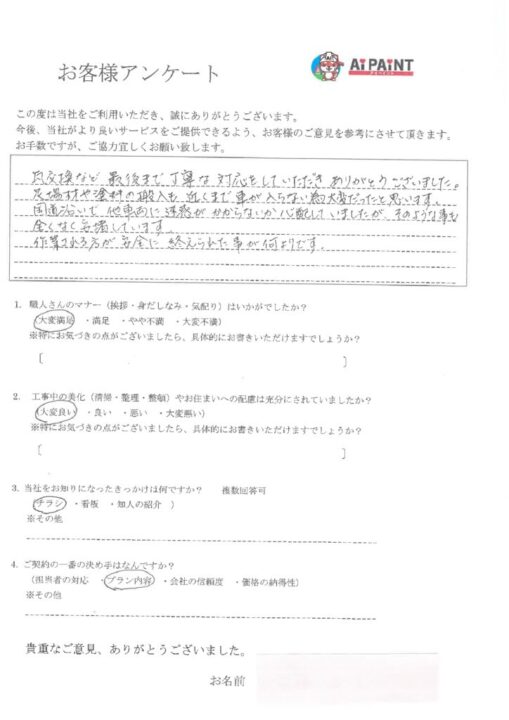 お客様アンケート
AiPAiNT
この度は当社をご利用いただき、誠にありがとうございます。
今後、当社がより良いサービスをご提供できるよう、お客様のご意見を参考にさせて頂きます。
お手数ですが、ご協力宜しくお願い致します。
瓦交換など最後まで丁寧な対応をしていただきありがとうございました。
足場材や塗料の搬入も近くまで車が入らない為大変だったと思います。
国道沿いで他車両に迷惑がかからないか心配していましたが、そのような事も
全くなく安堵しています。
作業される方が安全に終えられた事が何よりです。
1. 職人さんのマナー（挨拶・身だしなみ・気配り）はいかがでしたか？
（大変満足 ・満足 ・やや不満 ・大変不満）
※特にお気づきの点がございましたら、具体的にお書きいただけますでしょうか？
[ ]
2. 工事中の美化（清掃・整理・整頓）やお住まいへの配慮は充分にされていましたか？
（大変良い ・良い ・悪い ・大変悪い）
※特にお気づきの点がございましたら、具体的にお書きいただけますでしょうか？
[ ]
3. 当社をお知りになったきっかけは何ですか？ 複数回答可
（チラシ ・看板 ・知人の紹介 ）
※その他
4. ご契約の一番の決め手はなんですか？
（担当者の対応 ・プラン内容 ・会社の信頼度 ・価格の納得性）
※その他
貴重なご意見、ありがとうございました。
お名前